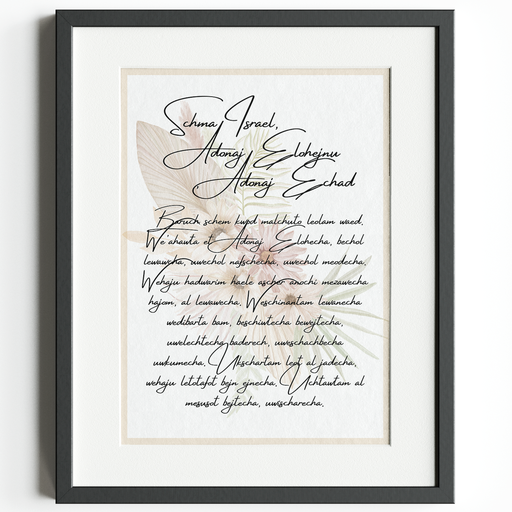 Schma Israel,
Adonaj Elohejnu
Adonaj Echad
Baruch schem kwpd malchuto leolam waed.
We ahawta et Adonaj Elohecha, bechol
lewawcha, uwechol nafschecha, uwechol meodecha.
Wehaju hadwarim haele ascher anochi mezawecha
hajom, al lewawecha. Weschinantam lewanecha
wedibarta bam, beschiwtecha bewejtecha,
uwelechtecha baderech, uweschachbecha
uwkumecha. Ukschartam leot al jadecha,
wehaju letotafot bejn ejnecha. Uchtawtam al
mesusot bejtecha, uwscharecha.